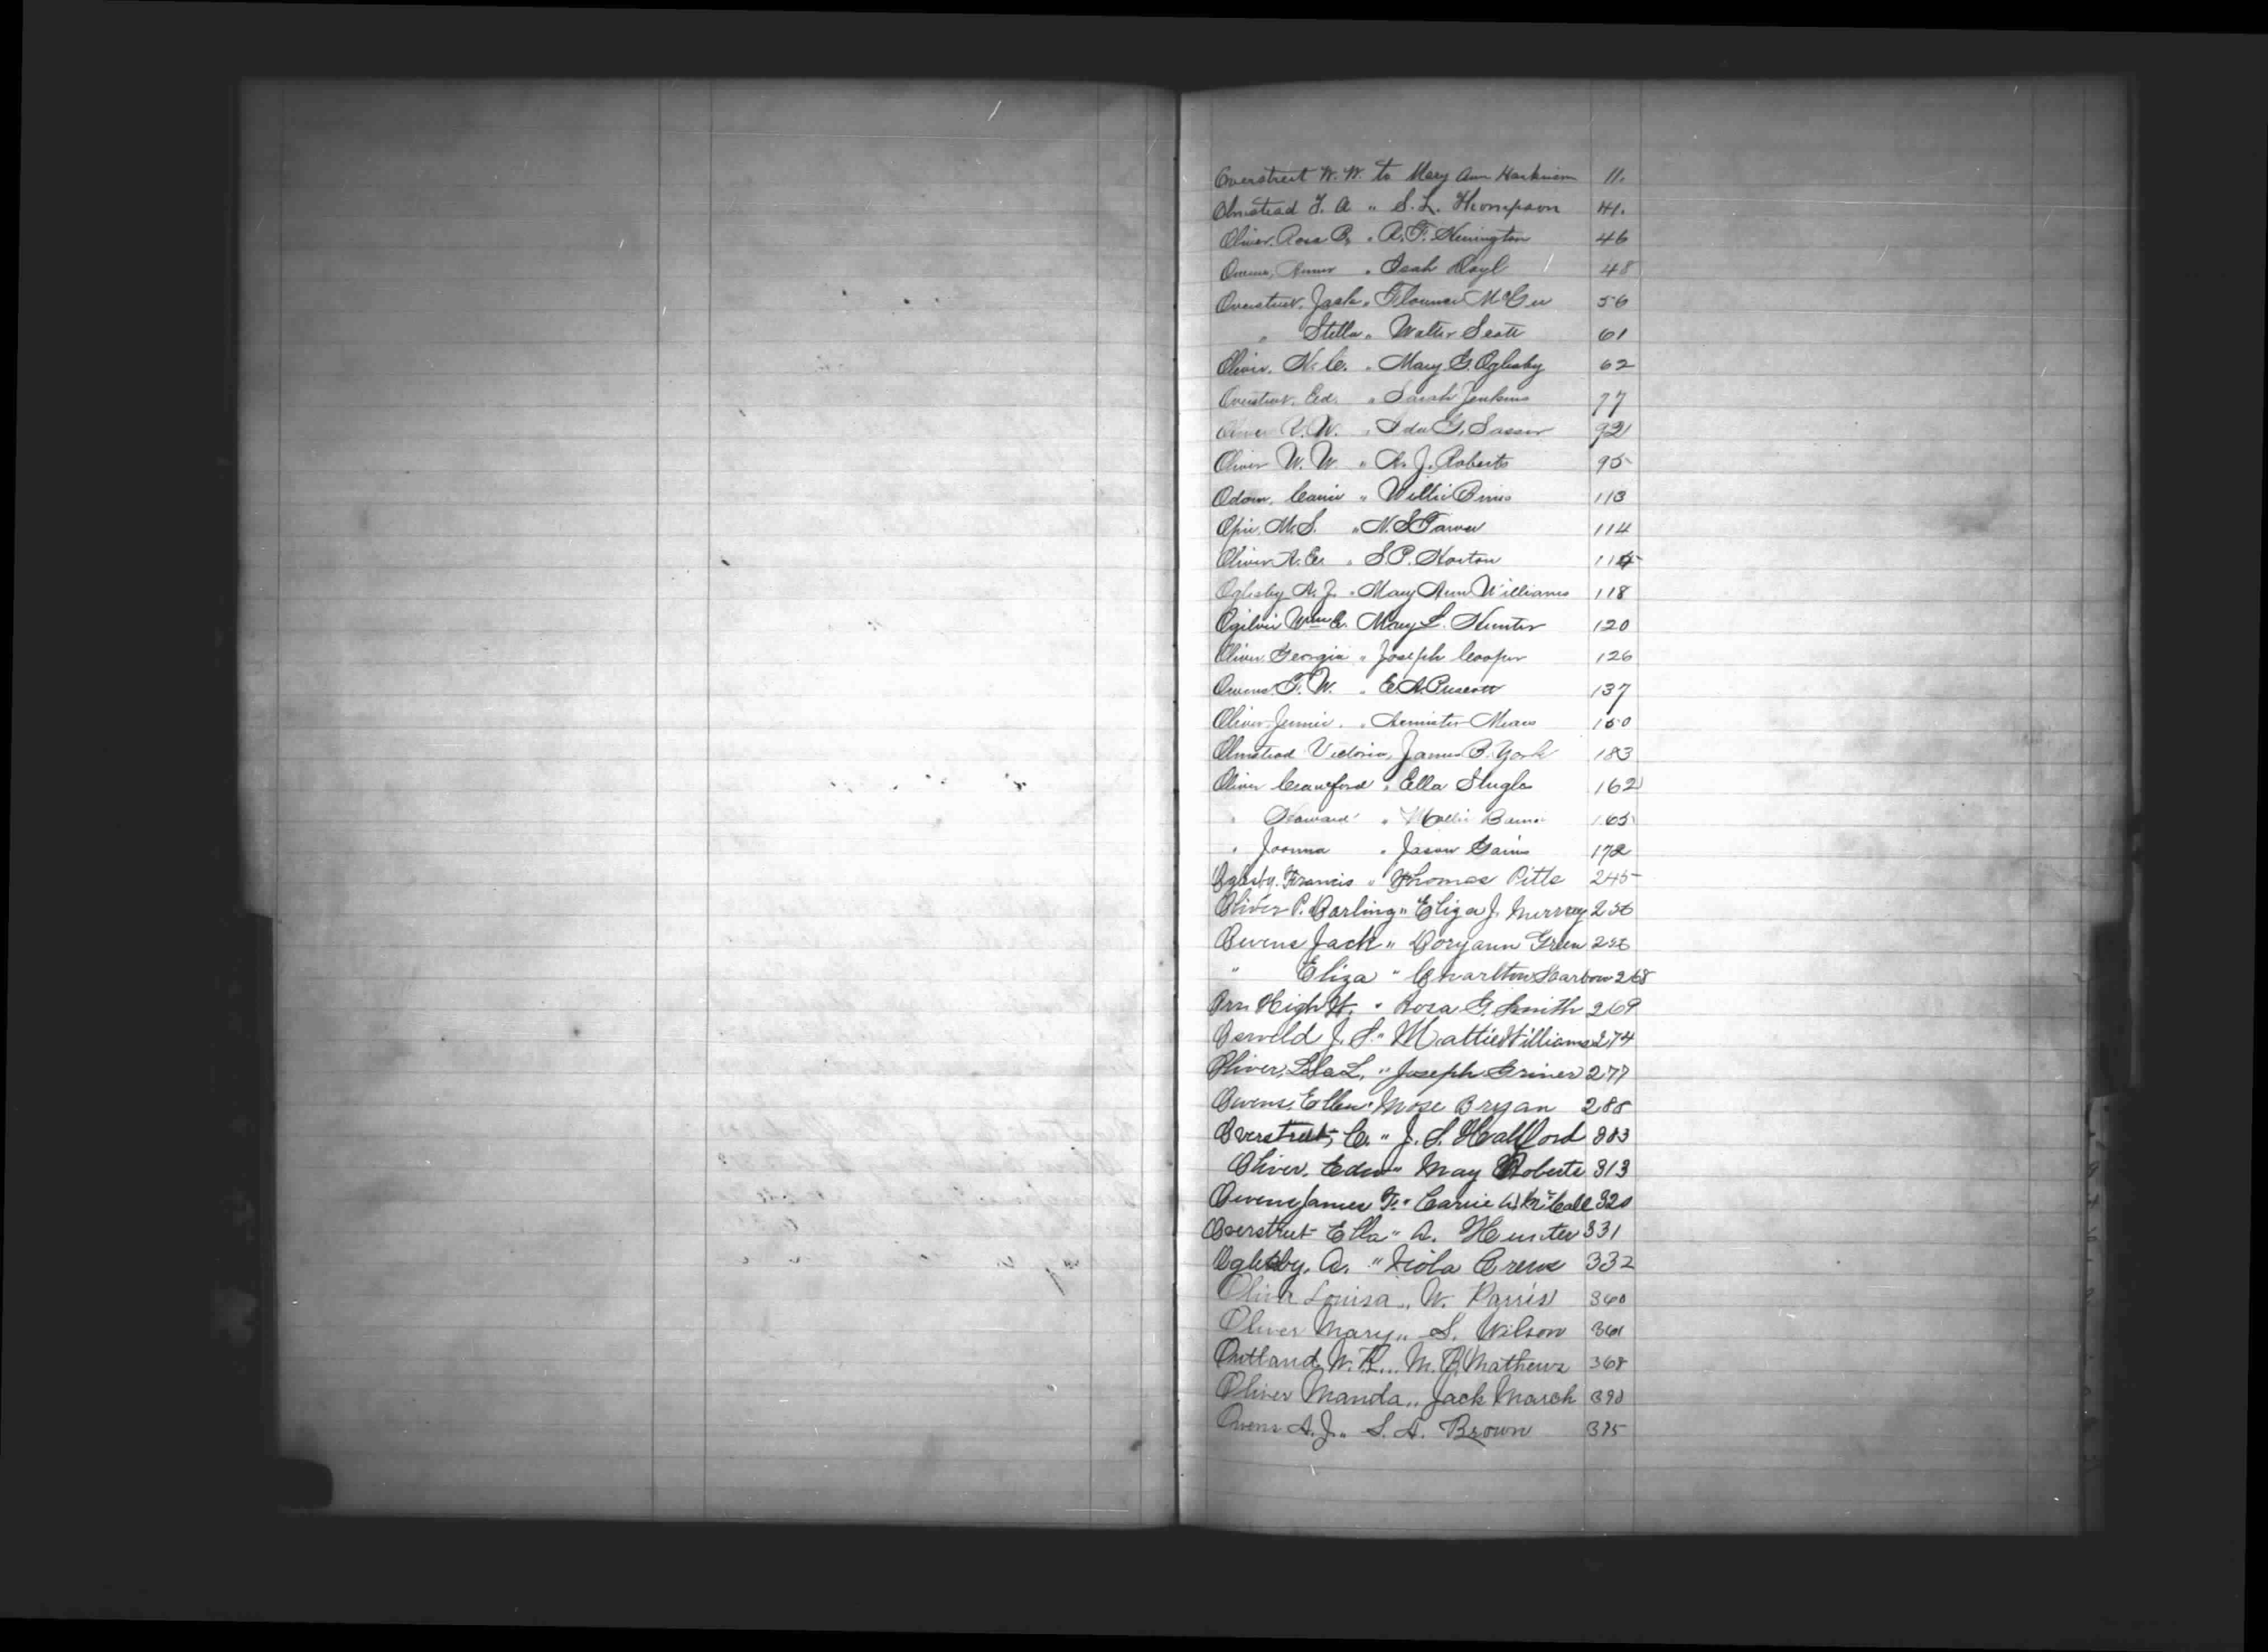 Overstreet W. W. to Mary Ann Harkinson 11.
Olmstead F. A " S. L. Thompson 41.
Oliver, Rosa B, " R. F. Herrington 46
Owens, " Isah Loyl 48
Overstreet, Jack " Florence McGee 56
" Stella " Walter Scott 61
Oliver, N. C. " Mary G. Oglesby 62
Overstreet, Ed. " Sarah Jenkins 77
Oliver V. W. " Ida G. Sasser 92
Oliver W. W. " A. J. Roberts 95
Odom, Carrie " Willie 113
Opie, M. S. " N. S. Tarver 114
Oliver A. E. " S. P. Horton 115
Oglesby A. J. " Mary Ann Williams 118
Ogilvie Wm C. Mary L. Hunter 120
Oliver, Georgia " Joseph Cooper 126
Owens F. W. " E. A. Prescott 137
Oliver Jennie " Mears 150
Olmstead Victoria, James B. York 183
Oliver Crawford " Ella 162
" " Mollie 165
" Joanna " Jason Gains 172
Oglesby, Francis " Thomas Pitts 245
Oliver P. Darling " Eliza J. Murray 256
Owens Jack " Doryann Green 256
" Eliza " Charlton Scarbow 268
Orr High W. " Rosa G. Smith 269
Osweld J. S. " Mattie Williams 274
Oliver, Lila L, " Joseph Griner 277
Owens, Ellen " Mose Bryan 288
Overstreet, C. " J. S. Hallford 303
Oliver, Eden " May Roberts 313
Owens James F. " Carrie W McCall 320
Overstreet Ella " A. Hunter 331
Oglesby, A. " Viola Crews 332
Oliver Louisa " W. Parris 360
Oliver Mary " S. Wilson 361
Outland W. R. " M. B. Mathews 368
Oliver Manda " Jack March 390
Owens A. J. " S. A. Brown 395